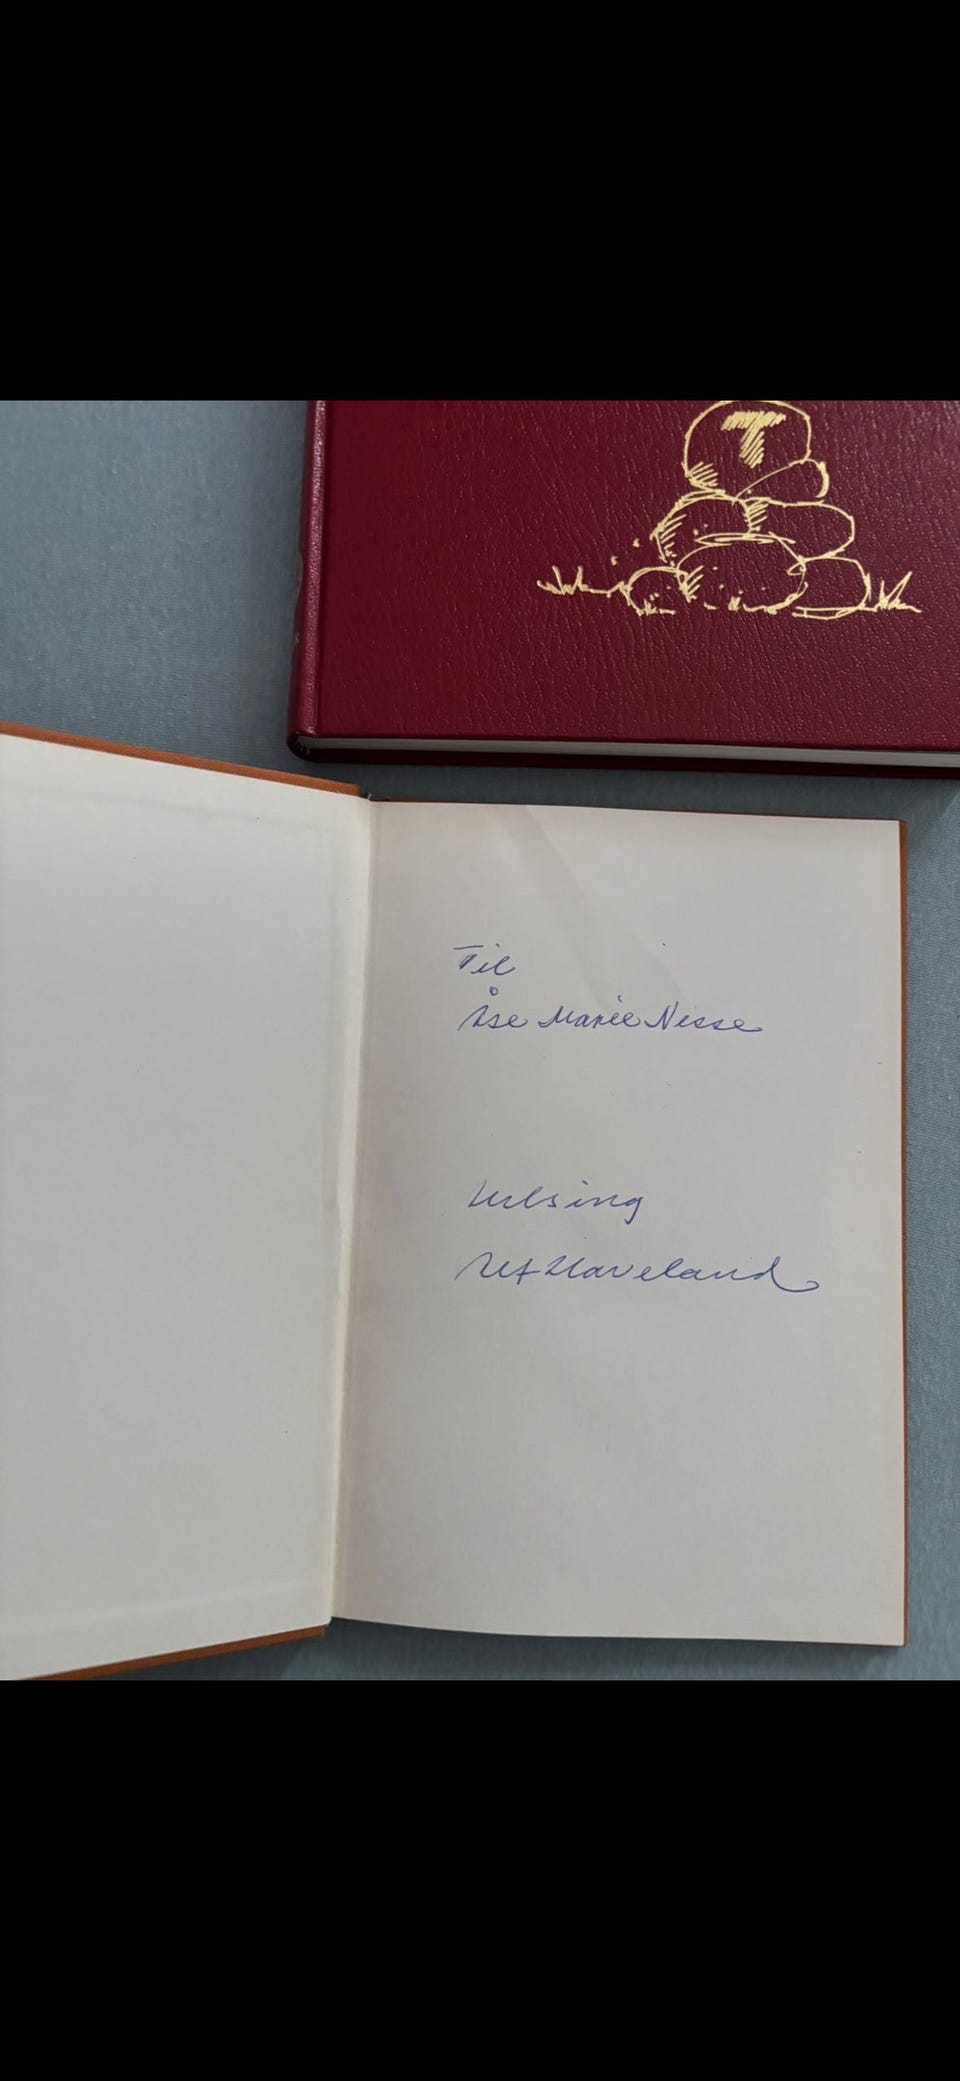 T
Til
Åse Marie Nesse
Helsing
Alf Haveland